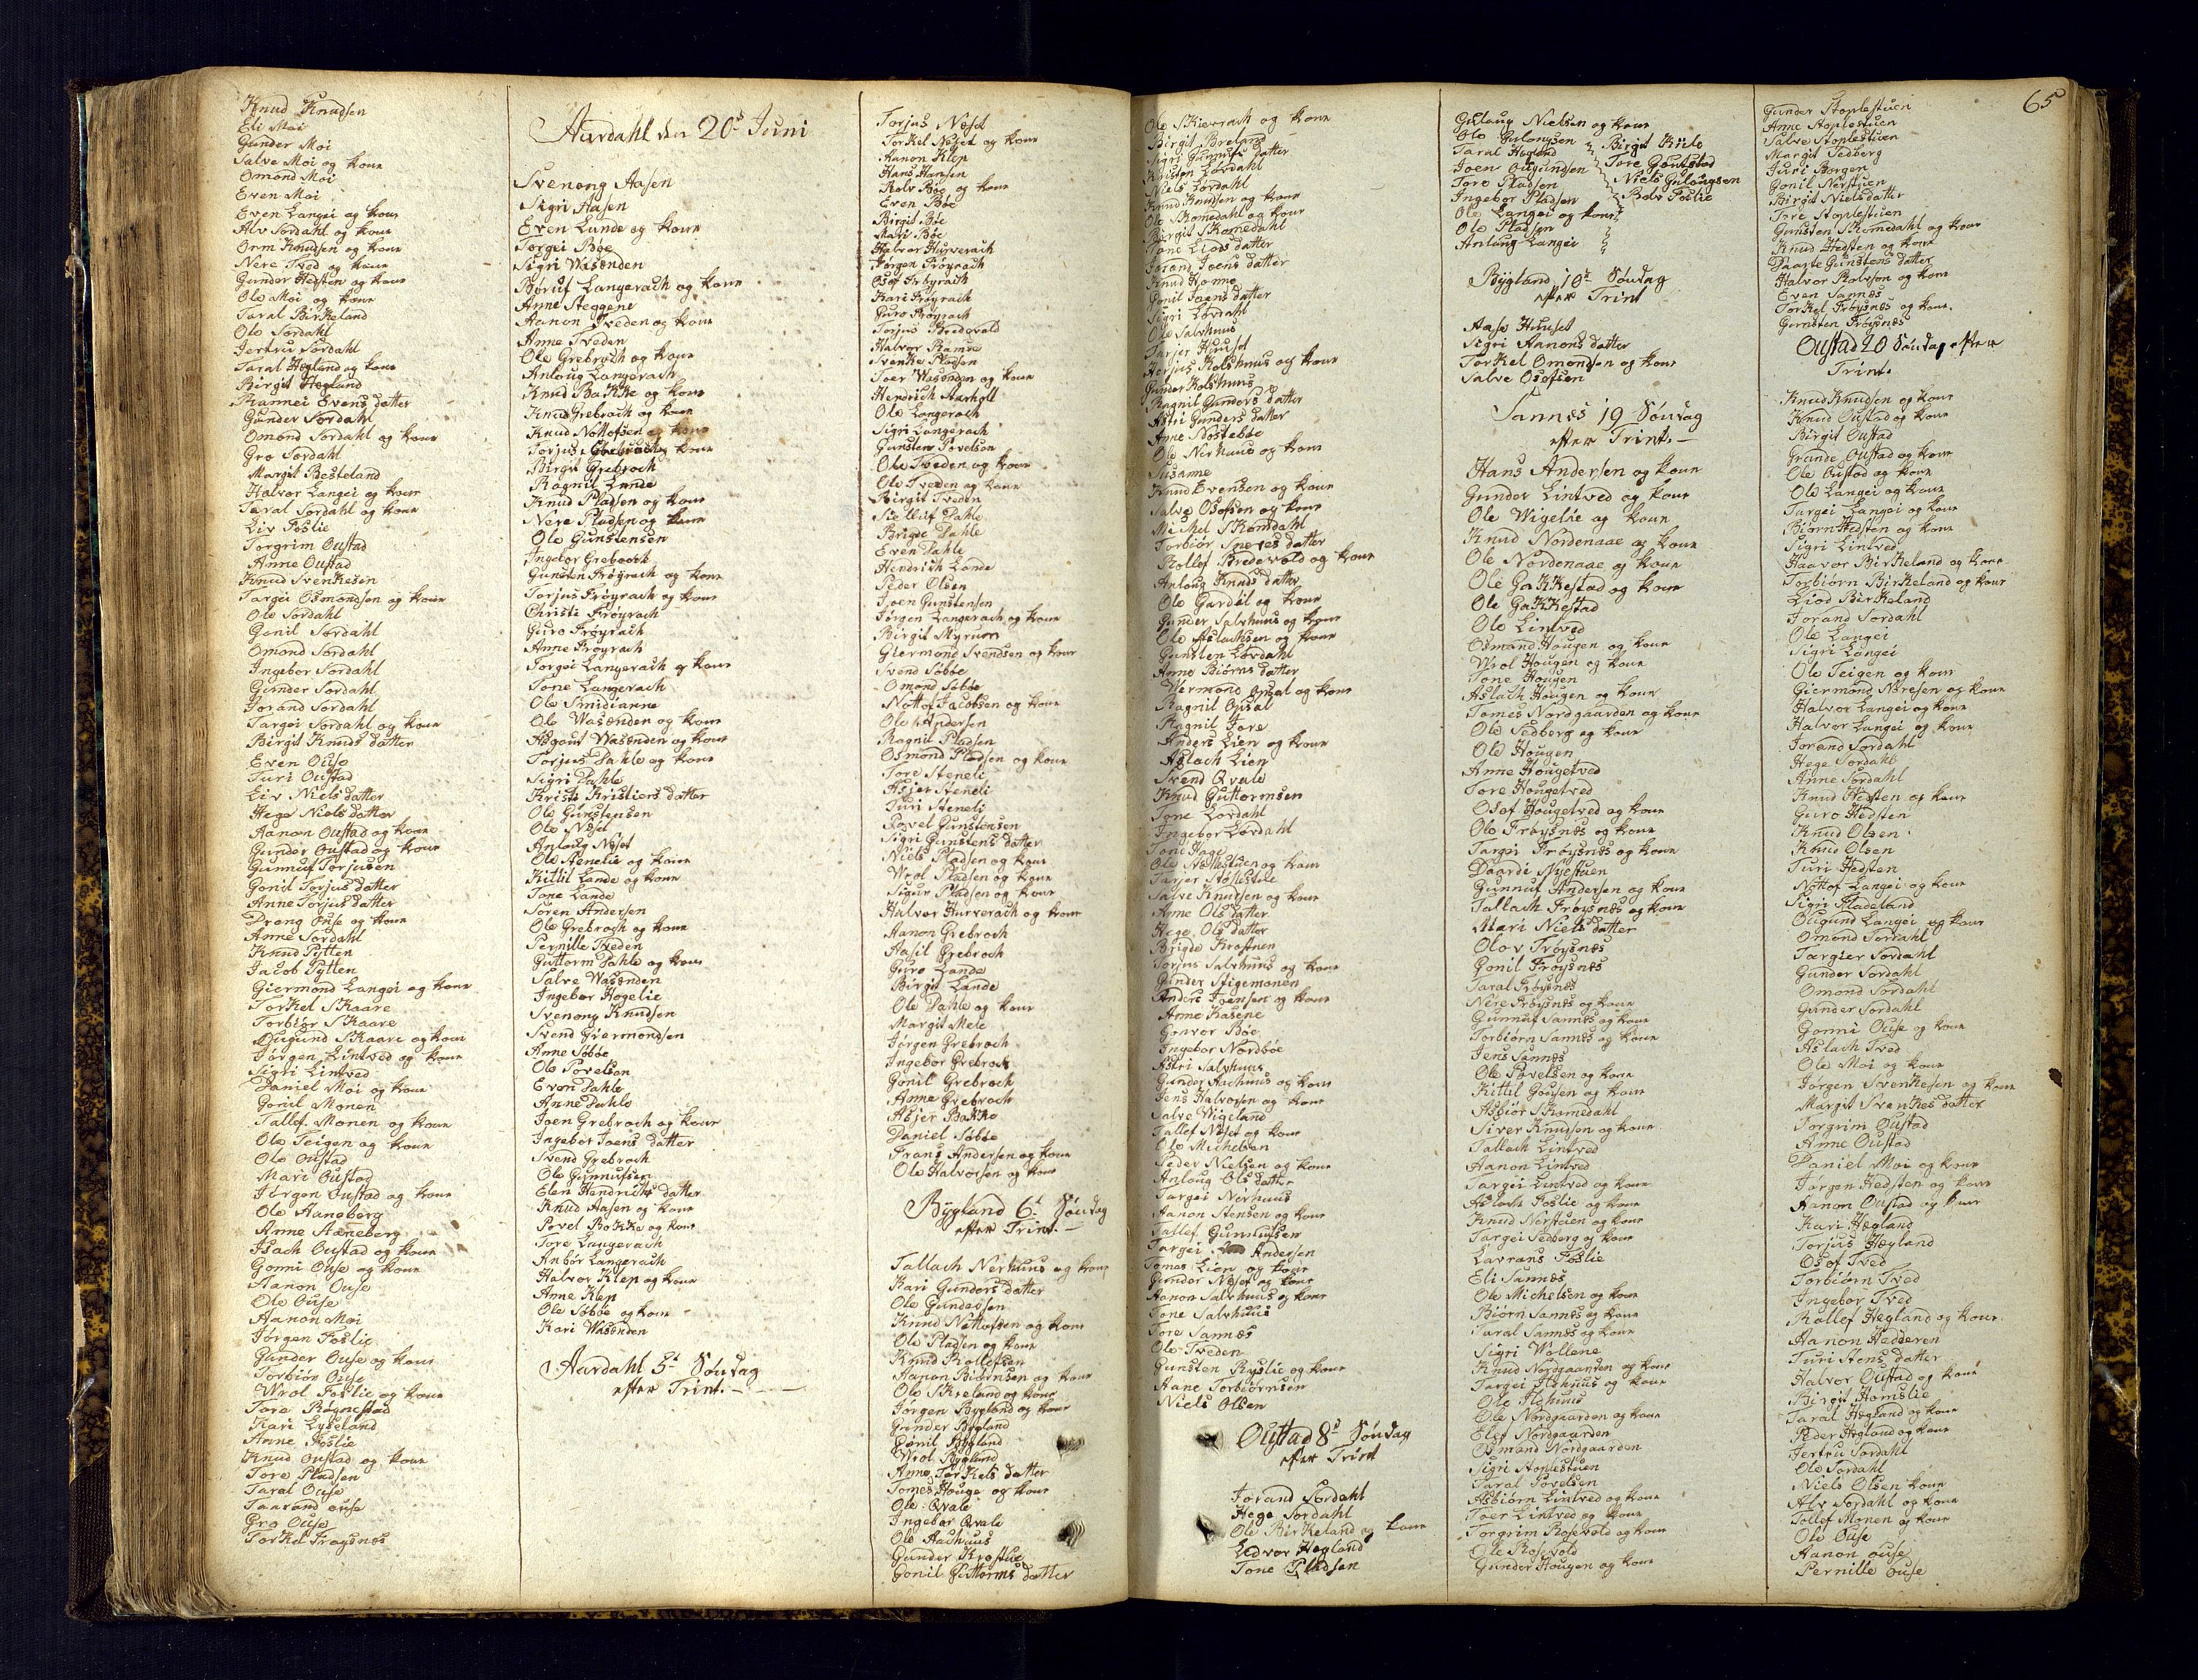 Knud Knudsen
Eli Moi
Gunder Moi
Salve Moi og kone
Omond Moi
Even Moi
Even Langei og kone
Alv Sordahl og kone
Orm Knudsen og kone
Nere Tved og kone
Gunder Hedsten og kone
Ole Moi og kone
Taral Birkeland
Ole Sordahl
Jertru Sordahl
Taral Hegland og kone
Birgit Hegland
Rannei Evens datter
Gunder Sordahl
Omond Sordahl og kone
Gro Sordahl
Margit Besteland
Halvor Langei og kone
Taral Sordahl og kone
Liv Foslie
Torgrim Oustad
Anne Oustad
Knud Svenkesen
Targei Osmondsen og kone
Ole Sordahl
Gunil Sordahl
Omond Sordahl
Ingebor Sordahl
Gunder Sordahl
Jorand Sordahl
Targei Sordahl og kone
Birgit Knuds datter
Even Ouse
Turi Oustad
Liv Nielsdatter
Hege Niels datter
Aanon Oustad og kone
Gunder Oustad og kone
Gunnuf Torjusen
Gonil Torjus datter
Anne Torjus datter
Drong Ouse og kone
Anne Sordahl
Knud Pytten
Jacob Pytten
Giermond Langei og kone
Torkel Skaare
Torbiør Skaare
Ougund Skaare og kone
Jørgen Lintved og kone
Sigri Lintved
Daniel Moi og kone
Gonil Monen
Tallef Monen og kone
Ole Teigen og kone
Ole Oustad
Mari Oustad
Jørgen Oustad og kone
Ole Aaneberg
Anne Aaneberg
Isach Oustad og kone
Gonni Ouse og kone
Aanon Ouse
Ole Ouse
Aanon Moi
Jørgen Foslie
Gunder Ouse og kone
Torbiør Ouse
Wrol Foslie og kone
Tore Røgnestad
Kari Lyseland
Anne Foslie
Knud Oustad og kone
Tore Pladsen
Taral Ouse
Taarand ouse
Gro Ouse
Torkel Frøysnes
Aardahl den 20de Juni
Svenong Aasen
Sigri Aasen
Even Lunde og kone
Torgei Bøe
Sigri Wasenden
Børuf Langerach og kone
Anne Steggene
Aanon Tveden og kone
Anne Tveden
Ole Grebroch og kone
Anloug Langerach
Knud Bakke og kone
Knud Grebroch og kone
Knud Nottofsen og kone
Torjus Grebroch og kone
Birgit Grebroch
Ragnil Lande
Knud Pladsen og kone
Nere Pladsen og kone
Ole Gunstensen
Ingebor Grebroch
Gunsten Frøyrach og kone
Torjus Frøyrach og kone
Christi Frøyrach
Guro Frøyrach
Anne Frøyrach
Torgei Langerach og kone
Tone Langerach
Ole Smidianne
Ole Wasenden og kone
Asgout Wasenden og kone
Torjus Dahle og kone
Sigri Dahle
Kristi Kristiers datter
Ole Gunstensen
Ole Neset
Anloug Neset
Ole Stenelie og kone
Kittil Lande og kone
Tone Lande
Søren Andersen
Ole Grebroch og kone
Pernille Tveden
Guttorm Dahle og kone
Salve Wasenden
Ingebor Hogelie
Svenong Knudsen
Svend Giermondsen
Anne Søbøe
Ole Povelsen
Even Dahle
Anne Dahle
Joen Grebroch og kone
Ingebor Joens datter
Svend Grebroch
Ole Gunnufsen
Elen Hendrichs datter
Knud Aasen og kone
Povel Bakke og kone
Tore Langerach
Anbør Langerach
Halvor Klep og kone
Anne Klep
Ole Søbøe og kone
Kari Wasenden
Aardahl 5te Søndag
efter Trint.
Torjus Neset
Torkel Neset og kone
Aanon Klep
Hans Hansen
Rolv Bøe og kone
Even Bøe
Birgit Bøe
Mari Bøe
Halvor Hurverach
Jørgen Frøyrach
Osof Frøyrach
Kari Frøyrach
Guro Frøyrach
Torjus Bredevold
Halvor Ramse
Svenke Pladsen
Toer Wasenden og kone
Hendrich Aarholt
Ole Langerach
Sigri Langerach
Gunsten Povelsen
Ole Tveden og kone
Ole Tveden og kone
Birgit Tveden
Birgit Dahle
Even Dahle
Hendrich Lande
Peder Olsen
Joen Gunstensen
Jørgen Langerach og kone
Birgit Myrum
Giermond Svendsen og kone
Svend Søbøe
Omond Søbøe
Nottof Jacobsen og kone
Ole Andersen
Ragnil Pladsen
Osmond Pladsen og kone
Tore Steneli
Asjer Steneli
Turi Steneli
Povel Gunstensen
Sigri Gunstens datter
Niels Pladsen og kone
Wrol Pladsen og kone
Sigur Pladsen og kone
Halvor Hurverach og kone
Aanon Grebroch
Aasil Grebroch
Guro Lande
Birgit Lande
Ole Dahle og kone
Margit Mele
Jørgen Grebroch
Ingebor Grebroch
Gonil Grebroch
Anne Grebroch
Asjer Bakke
Daniel Søbøe
Frans Andersen og kone
Ole Halvorsen og kone
Bygland 6te Søndag
efter Trint.
Tallach Nerhuus og kone
Kari Gunders datter
Ole Gundersen
Knud Nottofsen og kone
Ole Pladsen og kone
Knud Rollefsen
Aanon Biørnsen og kone
Ole Skreland og kone
Jørgen Bygland og kone
Gunder Bygland
Gonil Bygland
Wrol Bygland
Anne Torkels datter
Tomes Houge og kone
Ole Qvale
Ingebor Qvale
Ole Aachuus
Gunder Krostue
Gonil Guttorms datter
Ole Skievrach og kone
Birgit Breland
Sigri Gunnufs datter
Kristen Lørdahl
Niels Lørdahl
Knud Knudsen og kone
Ole Skomedahl og kone
Birgit Skomedahl
Tone Liods datter
Jorand Joens datter
Knud Homme
Gonil Joens datter
Sigri Lørdahl
Ole Salvhuus
Tarjer Huuset
Torjus Kolshuus og kone
Gunder Kolshuus
Ragnil Gunders datter
Astri Gunders datter
Anne Nostebøe
Ole Nerhuus og kone
Susanne
Knud Evensen og kone
Salve Osofsen og kone
Michel Skomdahl
Rollef Bredevold og kone
Anloug Knuds datter
Ole Gardøl og kone
Gunder Salvhuus og kone
Ole Aslachsen og kone
Gunsten Lørdahl
Anne Biørns datter
Wermond Opsal og kone
Ragnil Opsal
Ragnil Fore
Anders Lien og kone
Aslach Lien
Svend Qvale
Knud Guttormsen
Tone Lørdahl
Ingebor Lørdahl
Toni Hage
Salve Knutsen og kone
Anne Ols datter
Hege Ols datter
Brigde Krostuen
Torjus Salvhuus og kone
Gunder Stigemonen
Anders Joensen og kone
Anne Kasene
Gonvor Bøe
Ingebor Nordbøe
Astri Salvhuus
Gunder Aachuus og kone
Jens Halvorsen og kone
Salve Wigeland
Tallef Neset og kone
Ole Michelsen
Peder Nielsen og kone
Anloug Ols datter
Targei Nerhuus
Aanon Stensen og kone
Tallef Gunnufsen
Targei Andersen
Tomas Lien og kone
Gunder Neset og kone
Aanon Salvhuus og kone
Tone Salvhuus
Tore Sannes
Ole Tveden
Gunsten Ryslie og kone
Aane Torbiørnsen
Niels Olsen
Oustad 8de Søndag
efter Trint
Jorand Sordahl
Hege Sordahl
Ole Birkeland og kone
Ledvor Hegland
Tone Pladsen
65
Gulaug Nielsen og kone
Ole Gulougsen
Taral Hegland
Joen Ougundsen
Tore Pladsen
Ingebor Pladsen
Ole Langei og kone
Ole Pladsen
Anloug Langei
Birgit Kiile
Tore Goutestad
Niels Gulougsen
Rolv Foslie
Bygland 10de Søndag
efter Trint
Aase Huuset
Sigri Aanons datter
Torkel Omondsen og kone
Salve Osofsen
Sannes 19 Søndag
efter Trint.
Hans Andersen og kone
Gunder Lintved og kone
Ole Wigelie og kone
Knud Nordenaae og kone
Ole Nordenaae og kone
Ole Gakkestad og kone
Ole Gakkestad
Ole Lintved
Osmond Hougen og kone
Wrol Hougen og kone
Tone Hougen
Aslach Hougen og kone
Tomes Nordgaarden og kone
Ole Sedberg og kone
Ole Hougen
Anne Hougetved
Tore Hougetved
Osof Hougetved og kone
Ole Frøysnes og kone
Targei Frøysnes og kone
Daardi Nyestuen
Gunnuf Andersen og kone
Tallach Frøysnes og kone
Mari Niels datter
Olov Frøysnes
Gonil Frøysnes
Taral Frøysnes
Nere Frøysnes og kone
Gunnuf Sannes og kone
Torbiørn Sannes og kone
Jens Sannes
Ole Povelsen og kone
Kittil Goutsen og kone
Asbiør Skomedahl
Siver Knudsen og kone
Tallach Lintved
Aanon Lintved
Targei Lintved og kone
Aslach Foslie og kone
Knud Nerstuen og kone
Targei Sedberg og kone
Lavrans Foslie
Eli Sannes
Ole Michelsen og kone
Biørn Sannes og kone
Taral Sannes og kone
Sigri Wollene
Knud Nordgaarden og kone
Targei Ashuus og kone
Ole Ashuus
Ole Nordgaarden og kone
Elef Nordgaarden
Osmond Nordgaarden
Sigri Stoplestuen
Taral Povelsen
Asbiørn Lintved og kone
Toer Lintved og kone
Torgrim Rosevold og kone
Ole Rosevold
Gunder Hougen og kone
Gunder Stoplestuen
Anne Stoplestuen
Salve Stoplestuen
Margit Sedberg
Turi Borgen
Gonil Nerstuen
Birgit Nielsdatter
Tore Stoplestuen
Gunsten Skomedahl og kone
Knud Hedsten og kone
Daarte Gunstens datter
Halvor Rolvsen og kone
Even Sannes
Torkel Frøysnes og kone
Gunsten Frøysnes
Oustad 20 Søndag efter
Trint.
Knud Knudsen og kone
Knud Oustad og kone
Birgit Oustad
Grunde Oustad og kone
Ole Oustad og kone
Ole Langei og kone
Targei Langei og kone
Biørn Hedsten og kone
Sigri Lintved
Haavor Birkeland og kone
Torbiørn Birkeland og kone
Liod Birkeland
Jorand Sordahl
Ole Langei
Sigri Langei
Ole Teigen og kone
Giermond Neresen og kone
Halvor Langei og kone
Halvor Langei og kone
Jorand Sordahl
Hege Sordahl
Anne Sordahl
Knud Hedsten og kone
Guro Hedsten
Knud Olsen
Knud Olsen
Turi Hedsten
Nottof Langei og kone
Sigri Fladeland
Ougund Langei og kone
Omond Sordahl
Targier Sordahl
Gunder Sordahl
Omond Sordahl
Gunder Sordahl
Gonni Ouse og kone
Aslach Tved
Ole Moi og kone
Jørgen Svenkesen og kone
Margit Svenkes datter
Torgrim Oustad
Anne Oustad
Daniel Moi og kone
Jørgen Hedsten og kone
Aanon Oustad og kone
Kari Hegland
Torjus Hegland
Osof Tved
Torbiørn Tved
Ingebor Tved
Rollef Hegland og kone
Aanon Hedderen
Turi Stens datter
Halvor Oustad og kone
Birgit Homslie
Taral Hegland og kone
Peder Hegland og kone
Jertru Sordahl
Ole Sordahl
Niels Olsen kone
Alv Sordahl og kone
Tollef Monen og kone
Ole Ouse
Aanon ouse
Pernille ouse